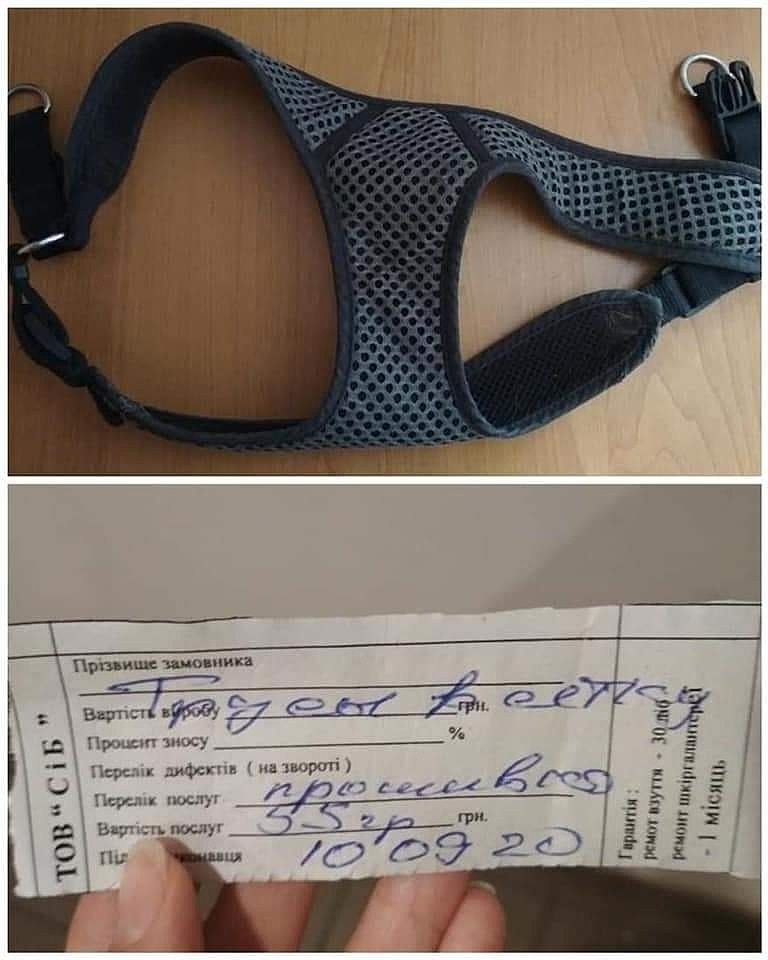 ТОВ “СіБ”
Прізвище замовника
Трусы в сетку
Вартість виробу грн.
Процент зносу %
Перелік дифектів ( на звороті )
Перелік послуг прошивка
Вартість послуг 55 гр грн.
Під иконавця 10 09 20
Гарантія :
ремот взуття - 30 діб
ремонт шкіргалантереї
- 1 місяць